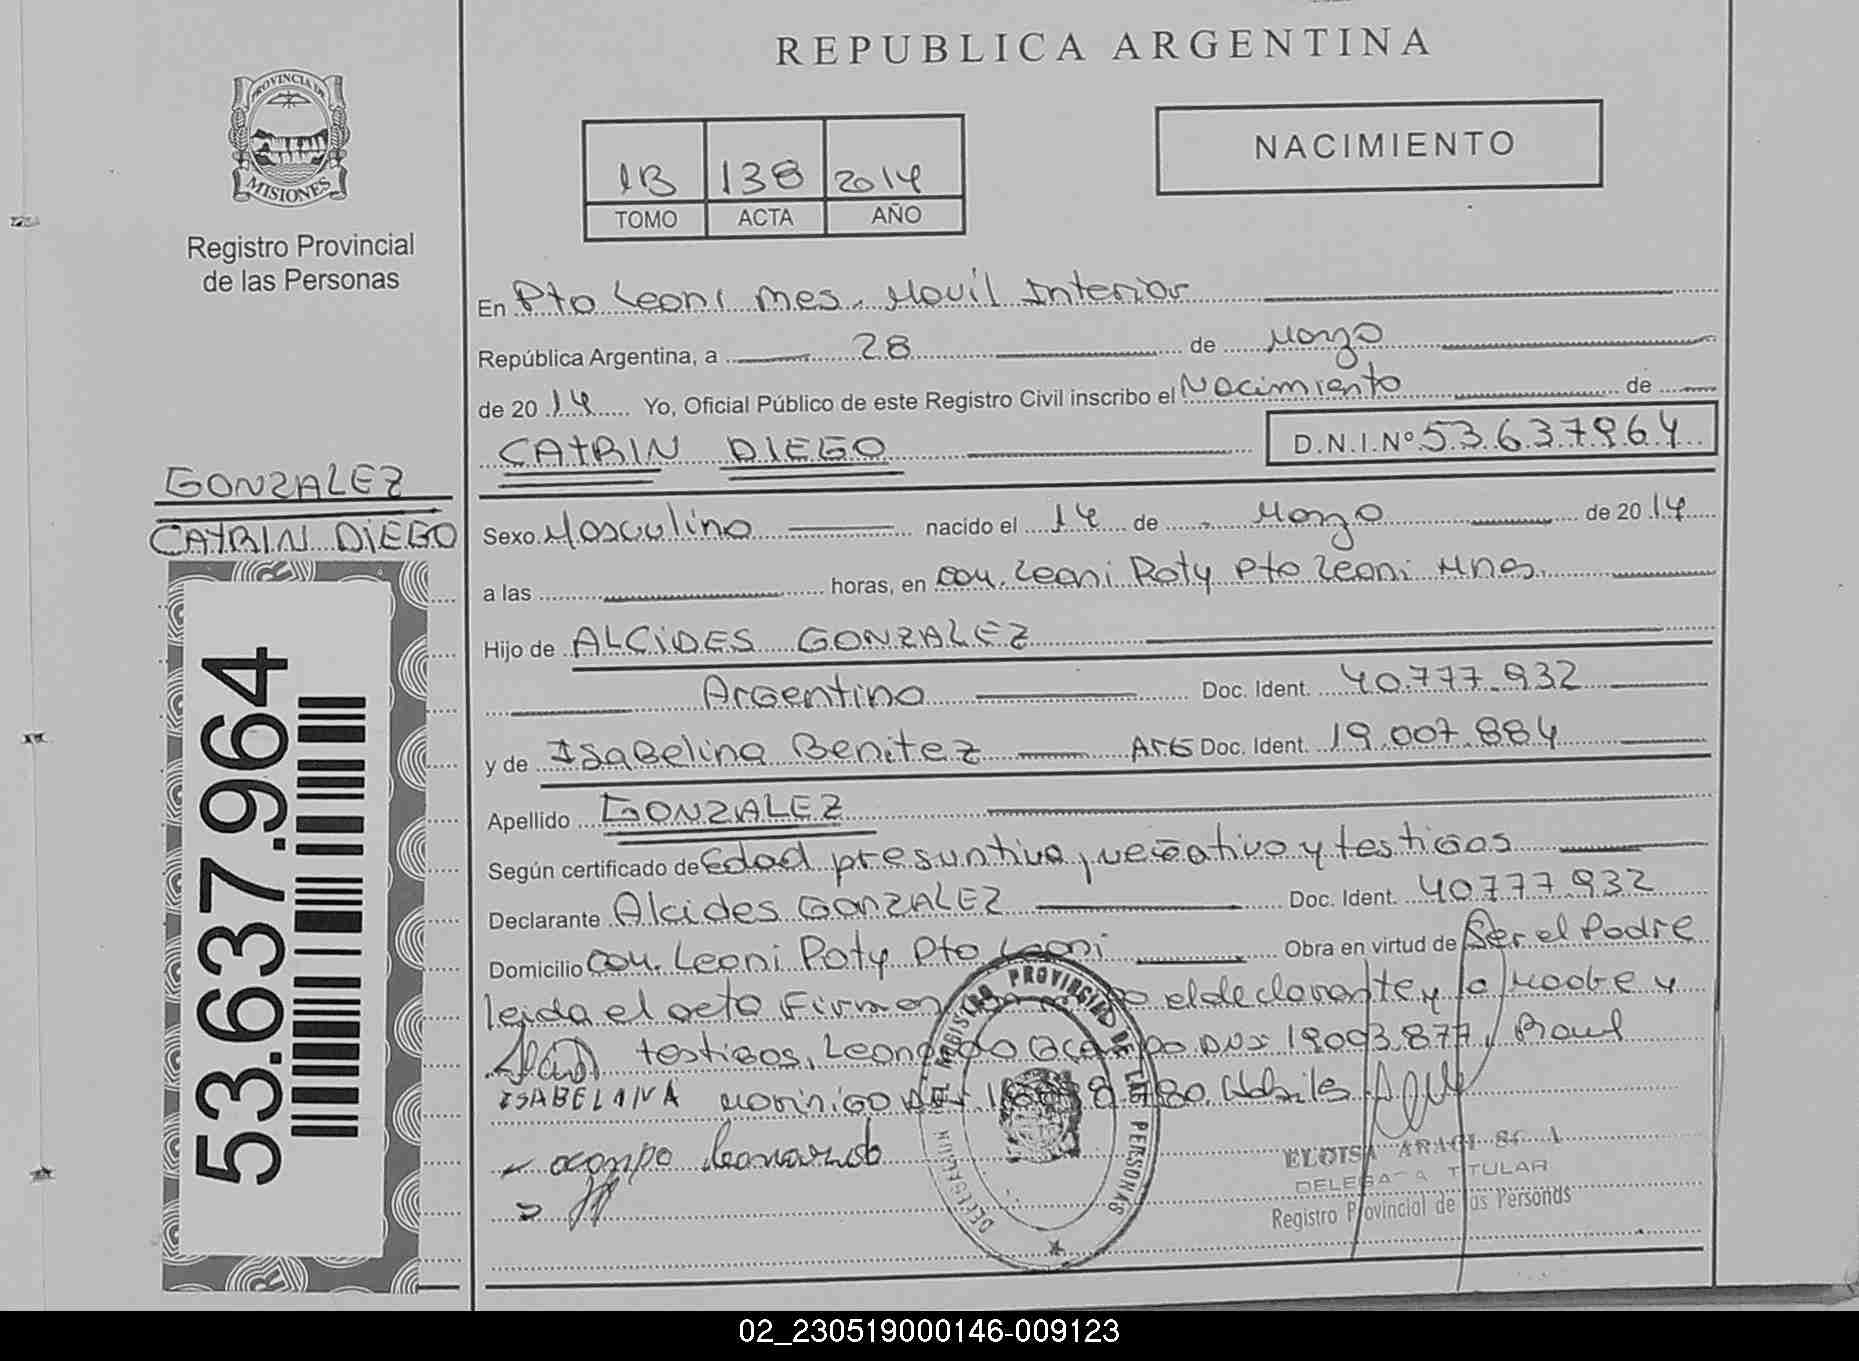 REPUBLICA ARGENTINA
PROVINCIA DE
MISIONES
Registro Provincial
de las Personas
1B 138 2014
TOMO ACTA AÑO
NACIMIENTO
En Pto Leoni Mes. Movil Interior
República Argentina, a 28 de Marzo
de 2014 Yo, Oficial Público de este Registro Civil inscribo el Nacimiento de
CATRIN DIEGO D.N.I.Nº 53.637.964
GONZALEZ
CATRIN DIEGO
53.637.964
Sexo Masculino nacido el 14 de Marzo de 2014
a las horas, en com. Leoni Poty Pto Leoni Mnes.
Hijo de ALCIDES GONZALEZ
Argentino Doc. Ident. 40.777.932
y de Isabelina Benitez ARG Doc. Ident. 19.007.884
Apellido GONZALEZ
Según certificado de Edad presuntiva, negativo y testigos
Declarante Alcides GONZALEZ Doc. Ident. 40777.932
Domicilio com. Leoni Poty Pto Leoni Obra en virtud de Ser el Padre
leida el acta Firman el declarante y la Madre y
testigos, Leonardo Ocampo DNI 19003.877,
ISABELINA
ocampo leonardo
REGISTRO PROVINCIAL DE LAS PERSONAS
DELEGACION
ELOISA
DELEGADA TITULAR
Registro Provincial de las Personas
02_230519000146-009123